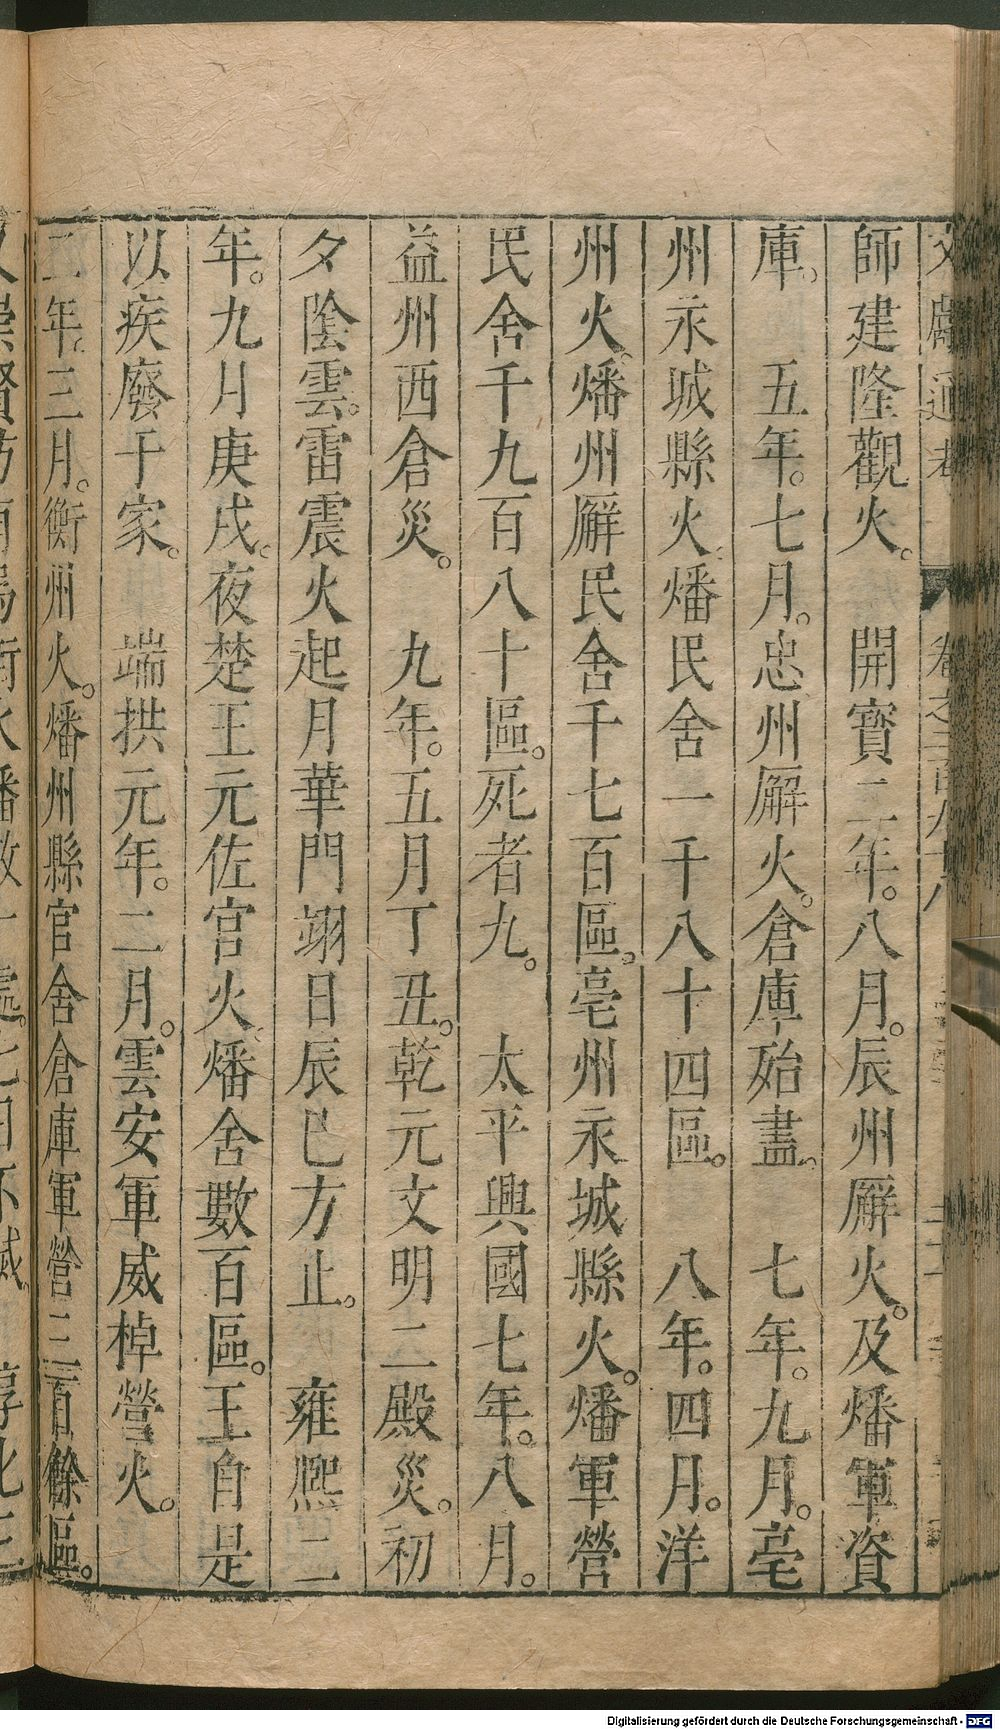 師建隆觀火。　開寶二年。八月。辰州廨火。及燔軍資
庫。　五年。七月。忠州廨火。倉庫殆盡。　七年。九月。亳
州永城縣火。燔民舍一千八十四區。　八年。四月。洋
州火。燔州廨民舍千七百區。亳州永城縣火。燔軍營
民舍千九百八十區。死者九。　太平興國七年。八月。
益州西倉災。　九年。五月丁丑。乾元文明二殿災。初
夕陰雲。雷震火起月華門翊日辰巳方止。　雍熙二
年。九月庚戌。夜楚王元佐宮火。燔舍數百區。王自是
以疾廢于家。　端拱元年。二月。雲安軍威棹營火。
二年。三月。衡州火。燔州縣官舍倉庫軍營三百餘區。
Digitalisierung gefördert durch die Deutsche Forschungsgemeinschaft - DFG